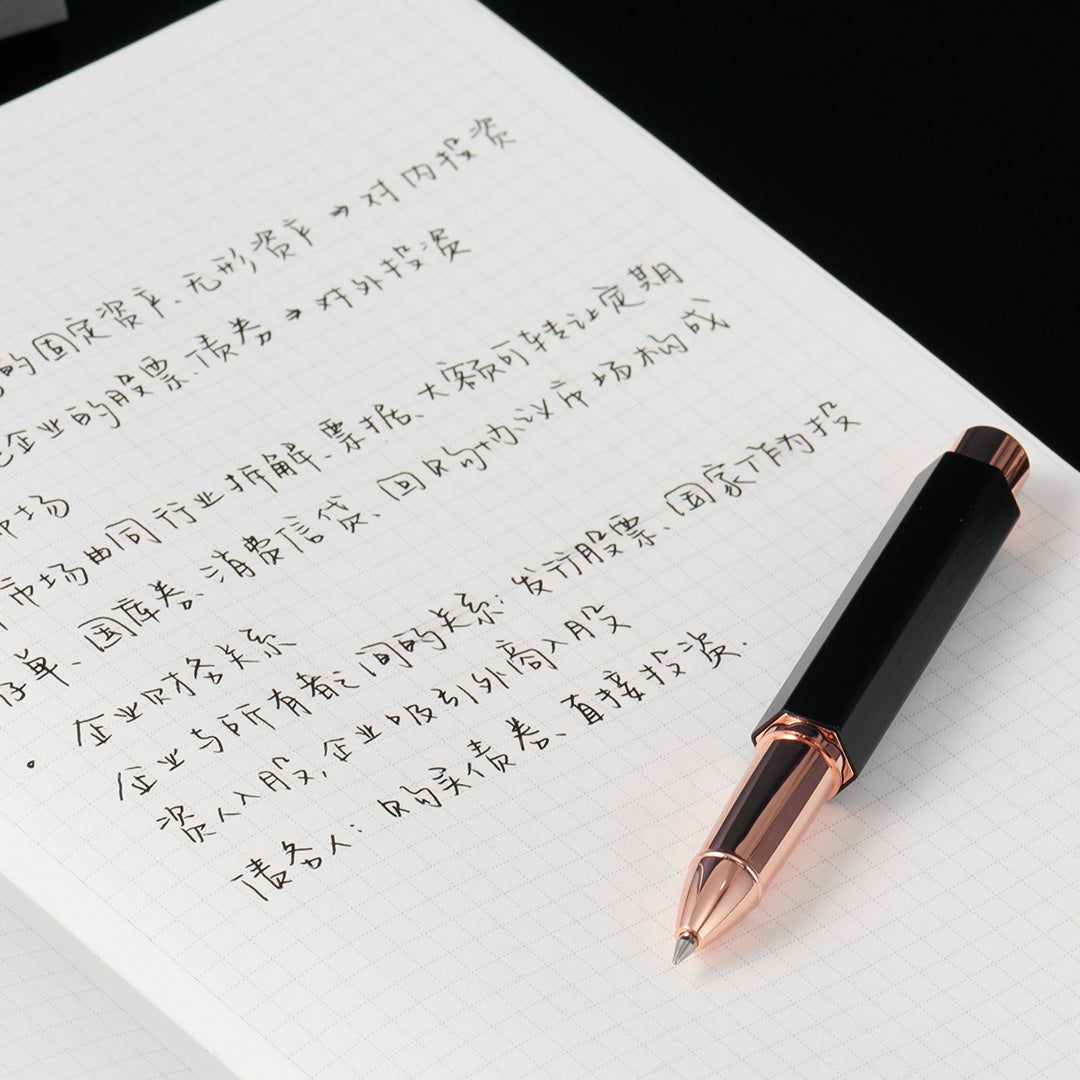 的固定资产、无形资产→对内投资
企业的股票、债券→对外投资
市场
市场由同行业拆解、票据、大额可转让定期
存单、国库券、消费信贷、回购协议市场构成
·企业财务关系
企业与所有者之间的关系：发行股票、国家作为投
资人入股，企业吸引外商入股
债务人：购买债券、直接投资.